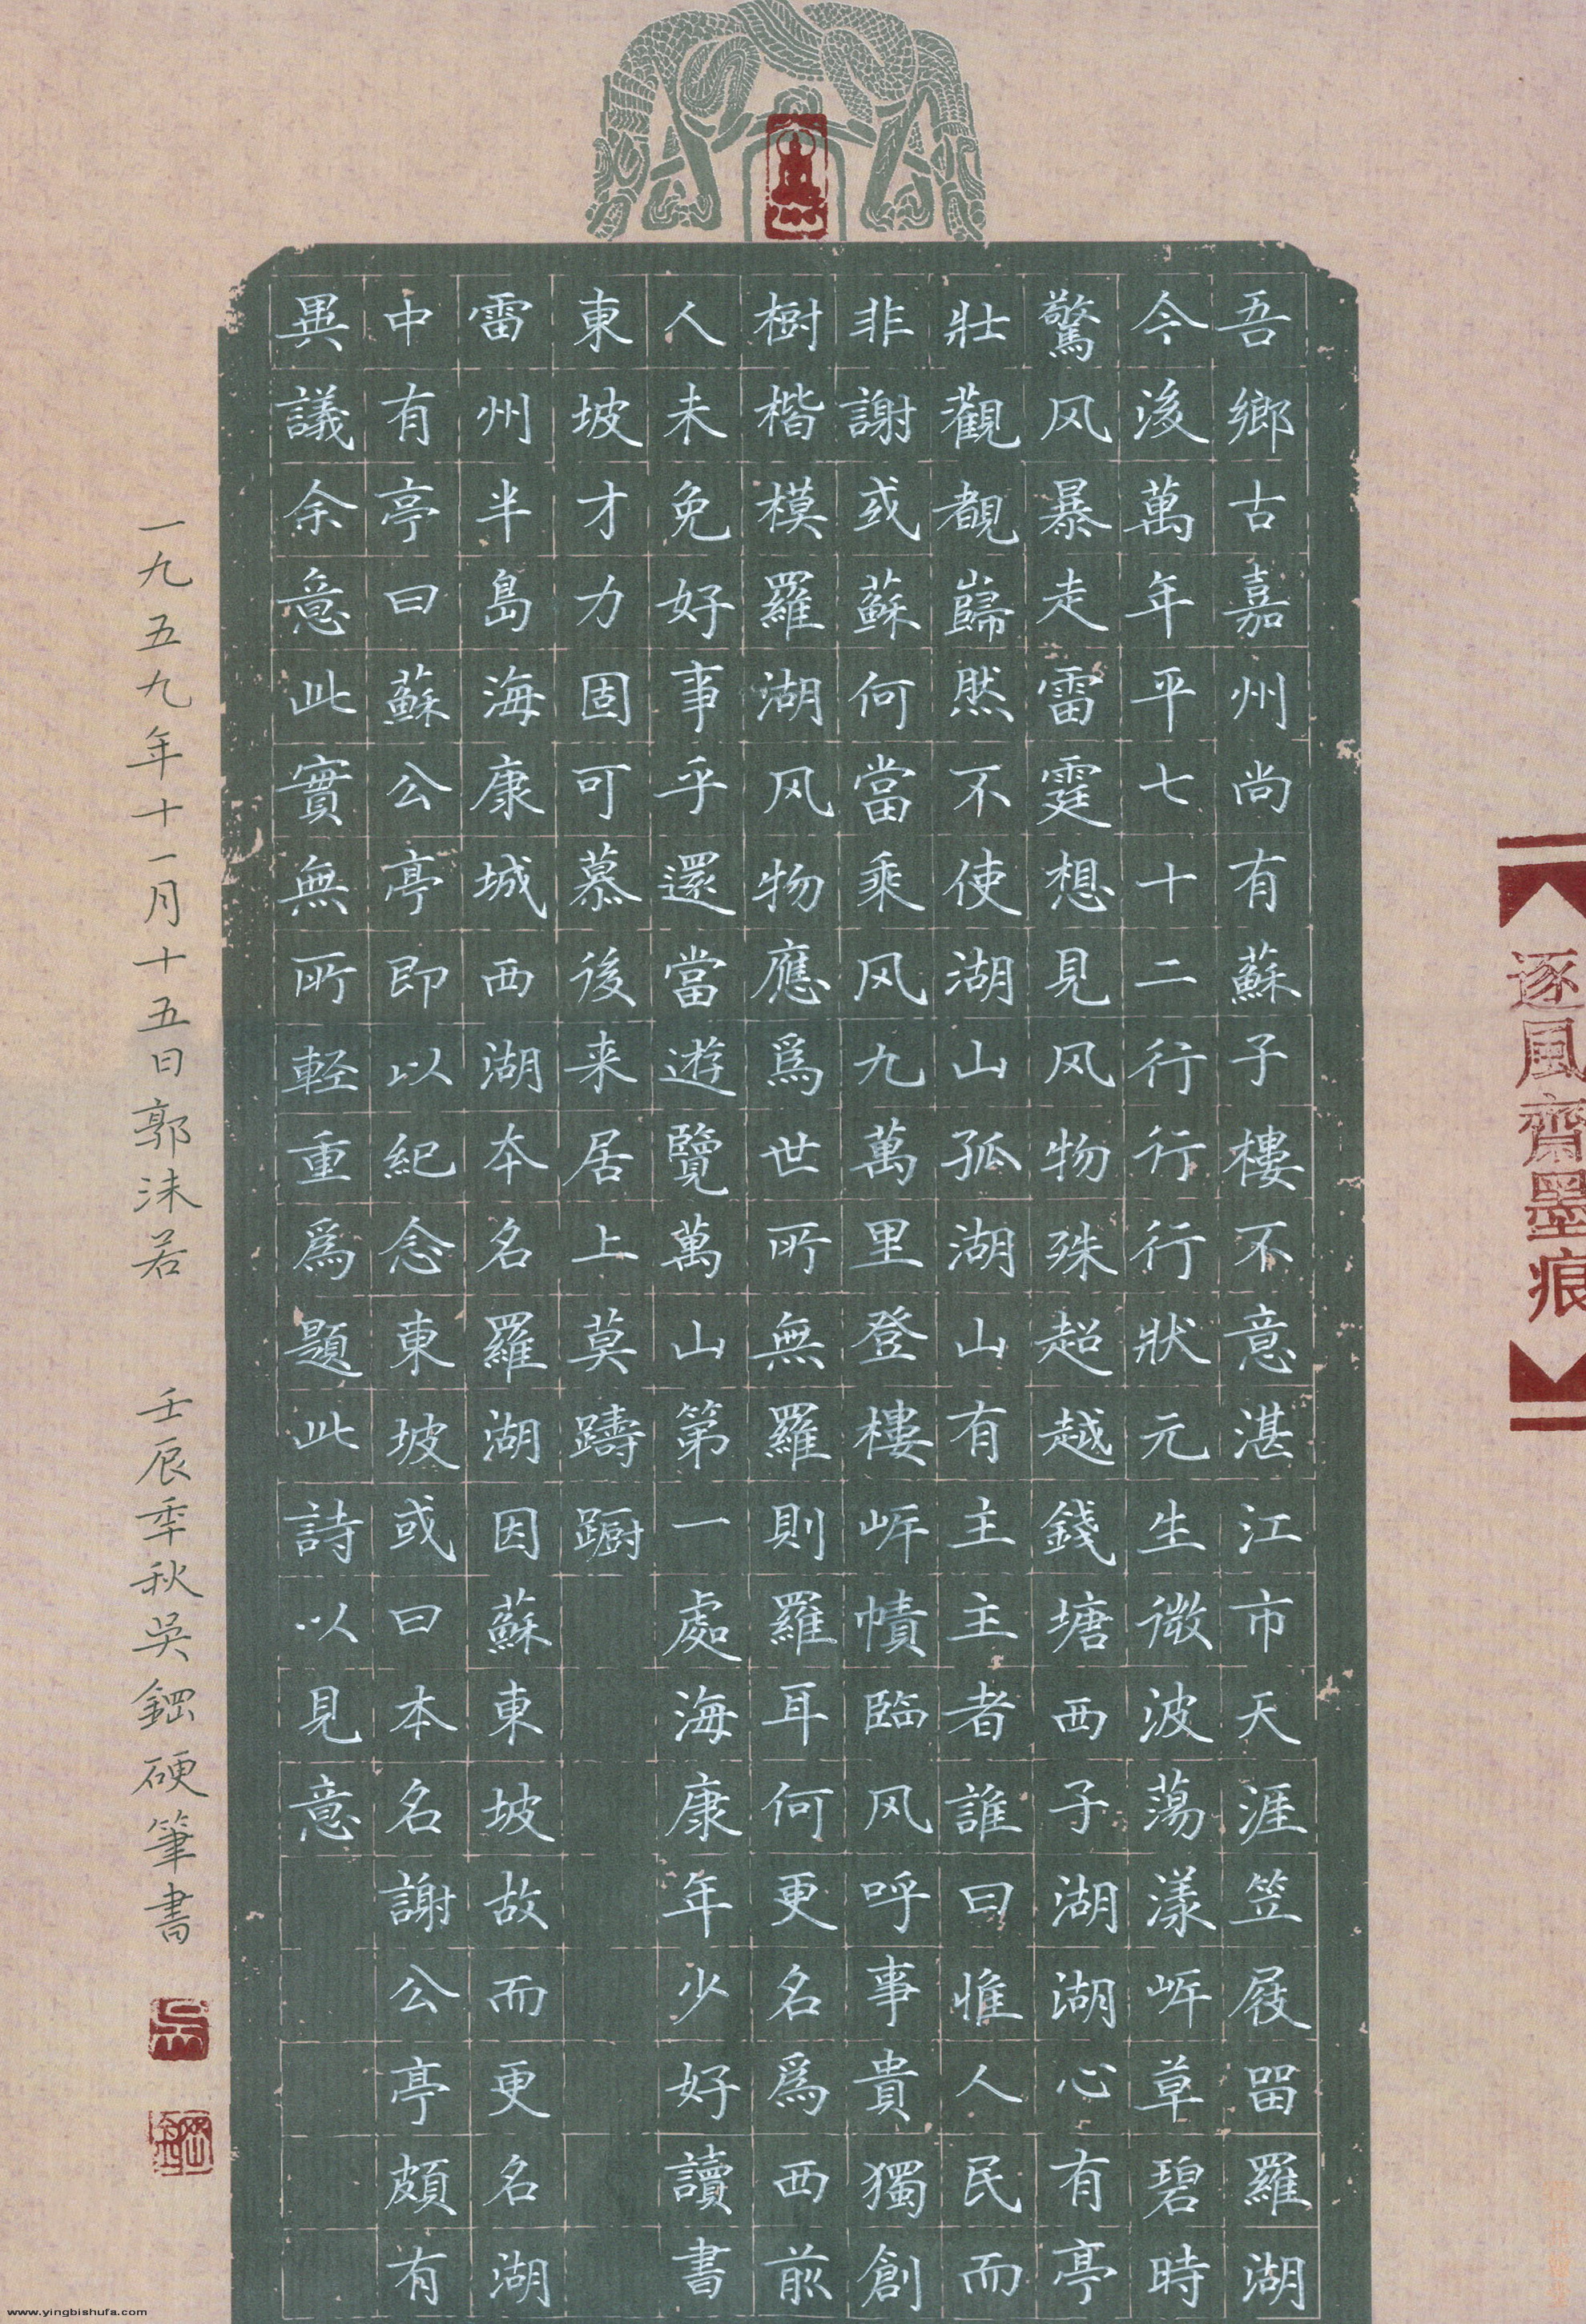 吾鄉古嘉州尚有蘇子樓不意湛江市天涯笠屐留羅湖
今後萬年平七十二行行行狀元生微波蕩漾岸草碧時
驚风暴走雷霆想見风物殊超越錢塘西子湖湖心有亭
壯觀覩巋然不使湖山孤湖山有主主者誰曰惟人民而
非謝或蘇何當乘风九萬里登樓岸幘臨风呼事貴獨創
樹楷模羅湖风物應爲世所無羅則羅耳何更名爲西前
人未免好事乎還當遊覽萬山第一處海康年少好讀書
東坡才力固可慕後来居上莫躊躕
雷州半島海康城西湖本名羅湖因蘇東坡故而更名湖
中有亭曰蘇公亭即以紀念東坡或曰本名謝公亭頗有
異議余意此實無所輕重爲題此詩以見意
一九五九年十一月十五日郭沫若 壬辰季秋吳鋼硬筆書
吳
鋼
逐風齋墨痕
www.yingbishufa.com